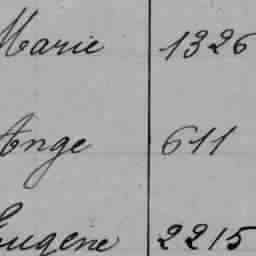 Marie 1326
Ange 611
Eugène 2215